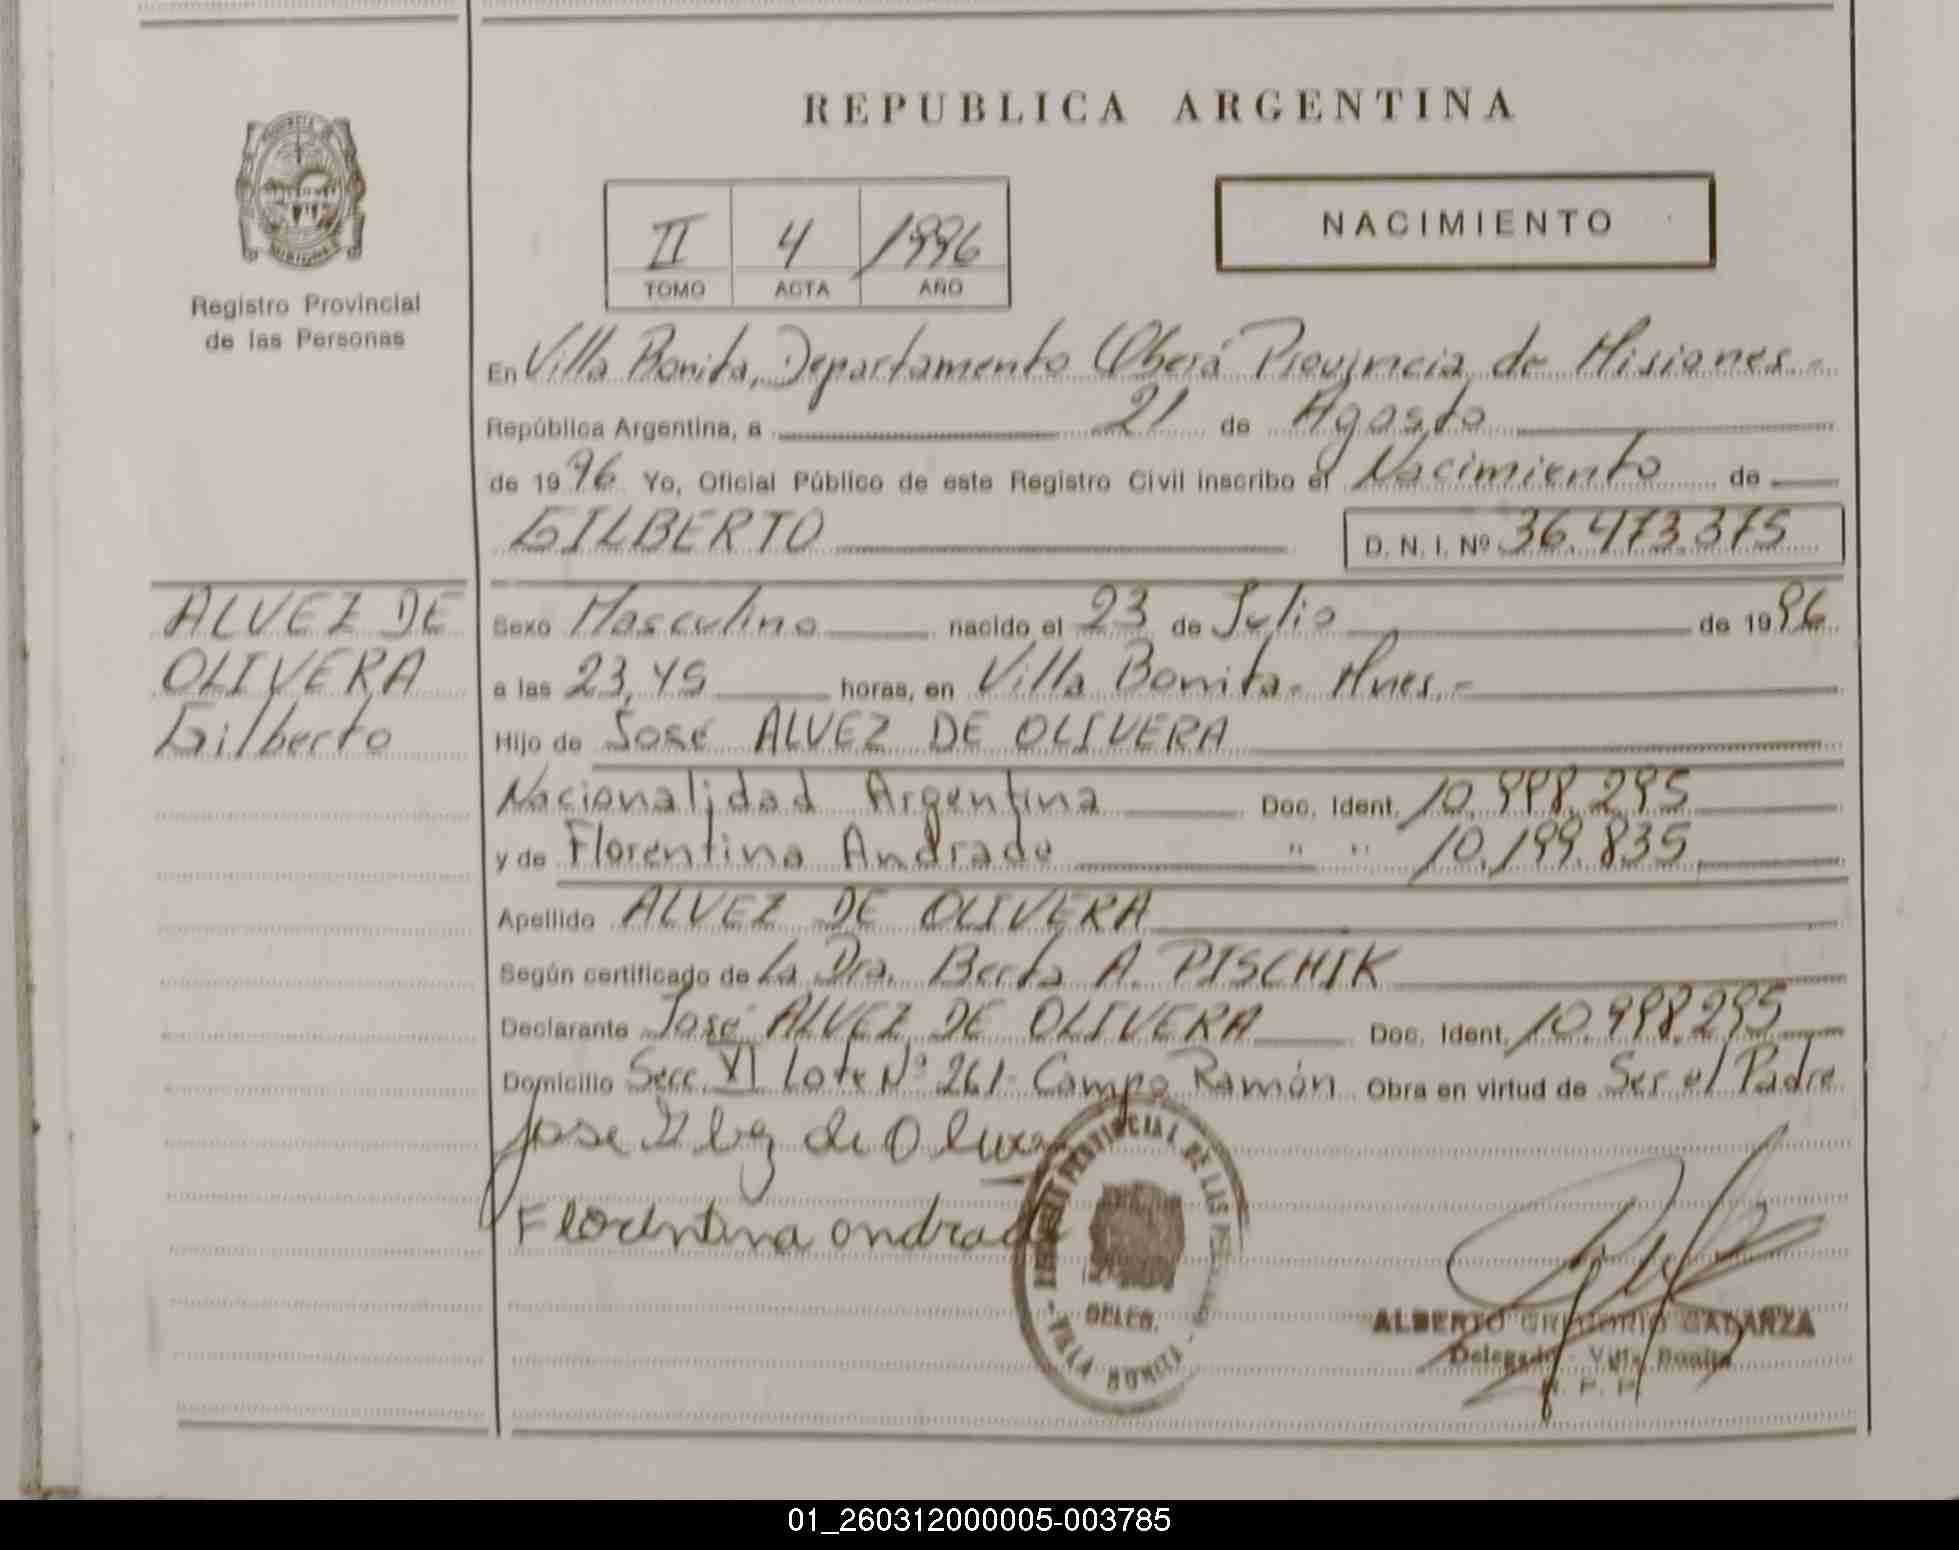 REPUBLICA ARGENTINA
II 4 1996
TOMO ACTA AÑO
NACIMIENTO
Registro Provincial
de las Personas
En Villa Bonita, Departamento Oberá Provincia de Misiones.-
República Argentina, a 21 de Agosto
de 1996 Yo, Oficial Público de este Registro Civil inscribo el Nacimiento de
GILBERTO D. N. I. Nº 36.473.375
ALVEZ DE
OLIVERA
Gilberto
Sexo Masculino nacido el 23 de Julio de 1996
a las 23,45 horas, en Villa Bonita- Mnes.-
Hijo de José ALVEZ DE OLIVERA
Nacionalidad Argentina Doc. Ident. 10.998.295
y de Florentina Andrade " " 10.199.835
Apellido ALVEZ DE OLIVERA
Según certificado de La Dra. Berta A. PISCHIK
Declarante José ALVEZ DE OLIVERA Doc. Ident. 10.998.295
Domicilio Secc. XI Lote Nº 261- Campo Ramón Obra en virtud de Ser el Padre
Jose de Olivera
Florentina andrade
PROVINCIAL DE LAS
DELEG.
VILLA BONITA
ALBERTO GREGORIO GALARZA
Delegado - Villa Bonita
R. P. P.
01_260312000005-003785